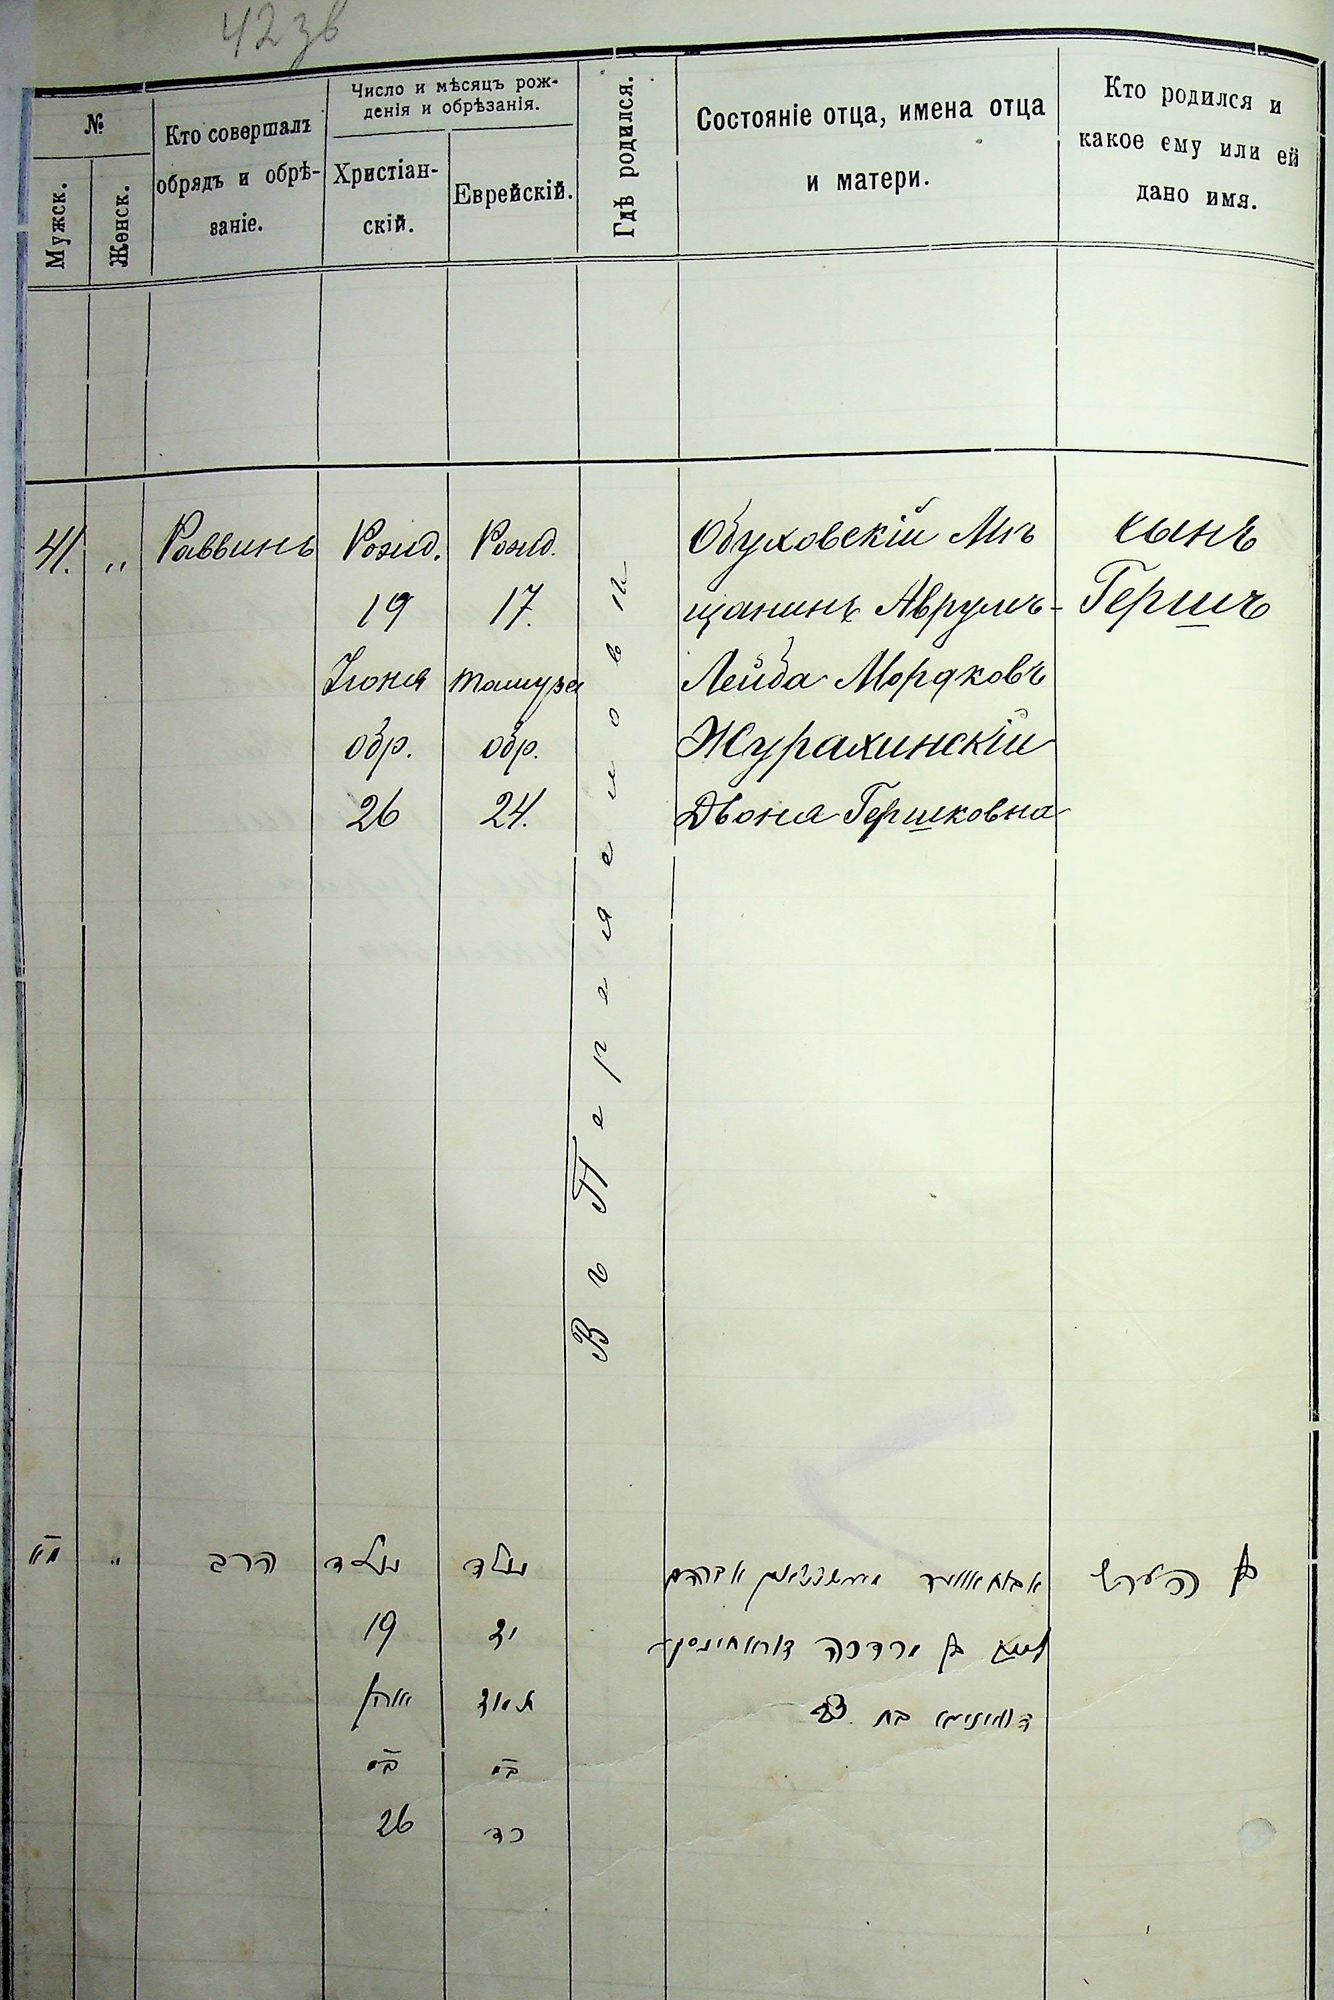 42 зв
№
Мужск.
Женск.
Кто совершалъ
обрядъ и обрѣ-
заніе.
Число и мѣсяцъ рож-
денія и обрѣзанія.
Христіан-
скій.
Еврейскій.
Гдѣ родился.
Состояніе отца, имена отца
и матери.
Кто родился и
какое ему или ей
дано имя.
41. „ Раввинъ
Рожд.
19
Іюня
обр.
26
Рожд.
17.
тамуза
обр.
24.
Въ Переяславѣ
Обуховскій Мѣ
щанинъ Аврумъ-
Лейба Мордковъ
Журахинскій
Двойра Гершковна
сынъ
Гершъ
מא „ הרב
נולד
19
יוני
26
נולד
יז
תמוז
כד
אברהם
בן מרדכה
בת
בן הערש